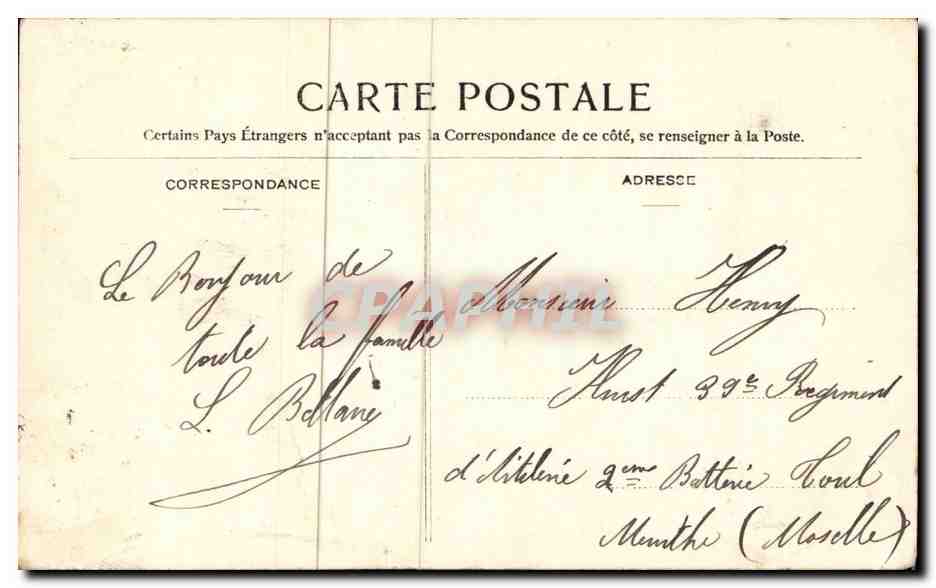 CARTE POSTALE
Certains Pays Étrangers n'acceptant pas la Correspondance de ce côté, se renseigner à la Poste.
CORRESPONDANCE
Le Bonjour de
toute la famille
L.
ADRESSE
Monsieur Henry
39e Regiment
d'Artilerie 2eme Batterie Toul
Meurthe (Moselle)
CPAPHIL